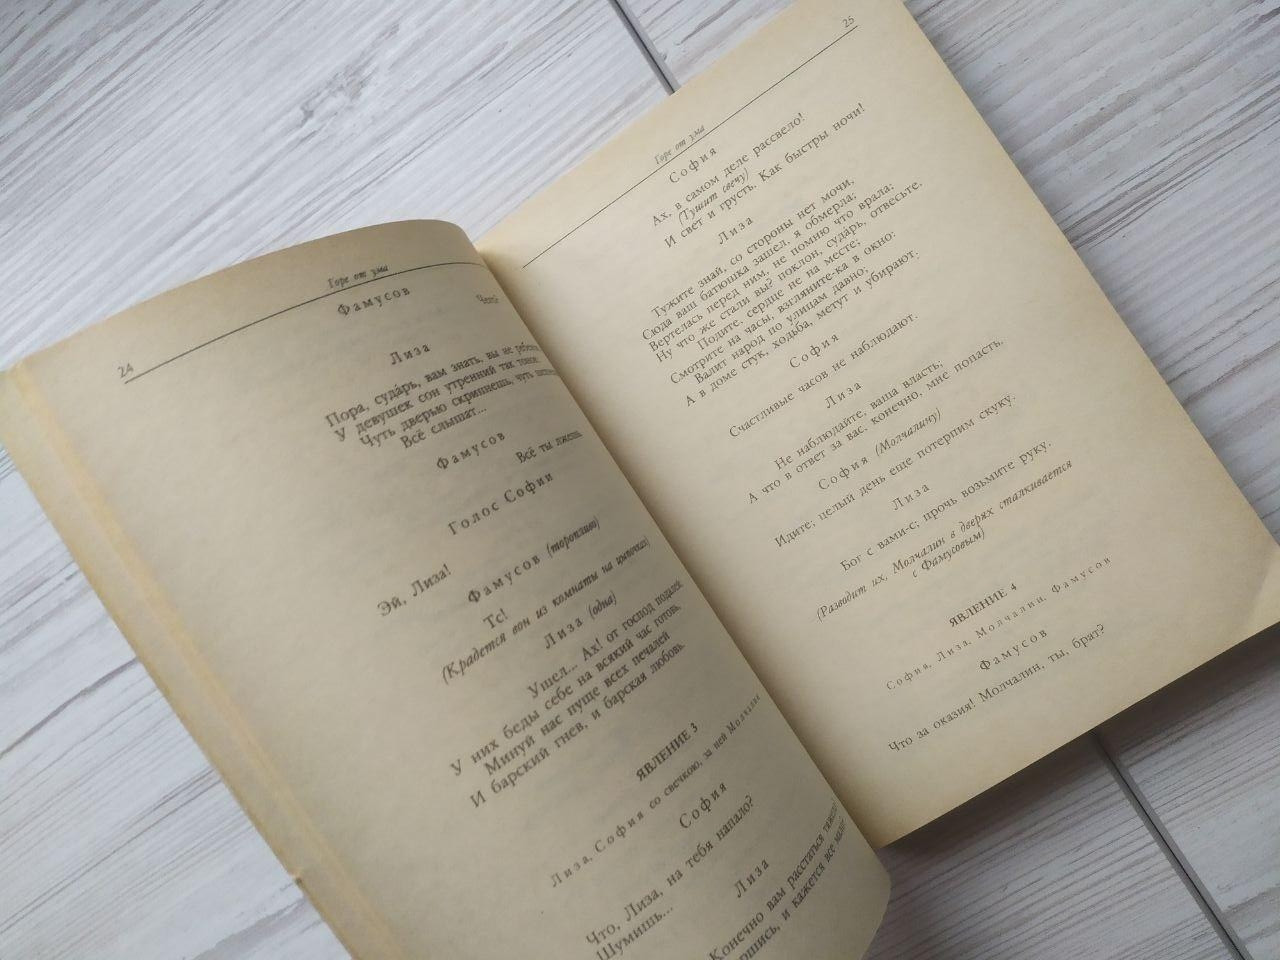 24
Горе от ума
Фамусов
Чего?
Лиза
Пора, суда́рь, вам знать, вы не ребенок,
У девушек сон утренний так тонок:
Чуть дверью скрипнешь, чуть
Всё слышат...
Фамусов
Всё ты лжешь.
Голос Софии
Эй, Лиза!
Фамусов (торопливо)
Тс!
(Крадется вон из комнаты на цыпочках)
Лиза (одна)
Ушел... Ах! от господ подалей
У них беды себе на всякий час готовь,
Минуй нас пуще всех печалей
И барский гнев, и барская любовь.
ЯВЛЕНИЕ 3
Лиза, София со свечкою, за ней Молчалин
София
Что, Лиза, на тебя напало?
Шумишь...
Лиза
Конечно вам расстаться тяжело?
и кажется все мало?
25
Горе от ума
София
Ах, в самом деле рассвело!
(Тушит свечу)
И свет и грусть. Как быстры ночи!
Лиза
Тужите знай, со стороны нет мочи,
Сюда ваш батюшка зашел, я обмерла;
Вертелась перед ним, не помню что врала;
Ну что же стали вы? поклон, суда́рь, отвесьте.
Подите, сердце не на месте;
Смотрите на часы, взгляните-ка в окно:
Валит народ по улицам давно;
А в доме стук, ходьба, метут и убирают.
София
Счастливые часов не наблюдают.
Лиза
Не наблюдайте, ваша власть;
А что в ответ за вас, конечно, мне попасть.
София (Молчалину)
Идите; целый день еще потерпим скуку.
Лиза
Бог с вами-с; прочь возьмите руку.
(Разводит их, Молчалин в дверях сталкивается
с Фамусовым)
ЯВЛЕНИЕ 4
София, Лиза, Молчалин, Фамусов
Фамусов
Что за оказия! Молчалин, ты, брат?